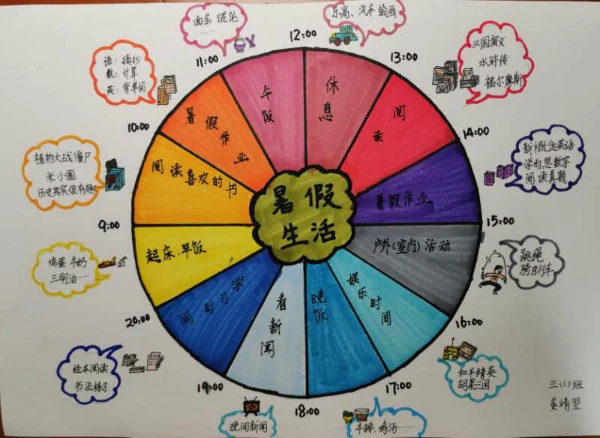 面条
乐高、汽车 绘画
12:00
11:00
13:00
语：摘抄
数：计算
英：背单词
三国演义
水浒传
福尔摩斯
午饭
休息
暑假作业
阅读
10:00
14:00
植物大战僵尸
米小圈
历史其实很有趣
阅读喜欢的书
暑假作业
新概念英语
学而思数学
阅读真题
暑假
生活
9:00
15:00
鸡蛋 牛奶
三明治……
起床、早饭
户外(室内)活动
跳绳
骑自行车
学习时间
看新闻
晚饭
娱乐时间
20:00
16:00
绘本阅读
书法练习
和平精英
胡莱三国
19:00
18:00
17:00
晚间新闻
牛排、鸡汤……
三(1)班